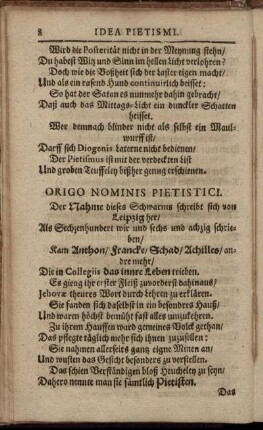 8 IDEA PIETISMI.
Wird die Posterität nicht in der Meynung stehn/
Du habest Witz und Sinn im hellen Licht verlohren?
Doch wie die Boßheit sich der Laster eigen macht/
Und als ein rasend Hund continuirlich beisset:
So hat der Satan es nunmehr dahin gebracht/
Daß auch das Mittags-Licht ein dunckler Schatten
heisset.
Wer demnach blinder nicht als selbst ein Maul-
wurff ist/
Darff sich Diogenis Laterne nicht bedienen/
Der Pietismus ist mit der verdeckten List
Und groben Teuffeley bißher genug erschienen.
ORIGO NOMINIS PIETISTICI.
Der Nahme dieses Schwarms schreibt sich von
Leipzig her/
Als Sechzenhundert wie und sechs und achzig schrie-
ben/
Kam Anthon/ Francke/ Schad/ Achilles/ an-
dre mehr/
Die in Collegiis das innre Leben trieben.
Es gieng ihr erster Fleiß zuvorderst dahinaus/
Jehovæ theures Wort durch lehren zu erklären.
Sie fanden sich deßhalb in ein besonders Hauß/
Und waren höchst bemüht fast alles umzukehren.
Zu ihrem Hauffen ward gemeines Volck gethan/
Das pflegte täglich mehr sich ihnen zuzusellen:
Sie nahmen allerseits gantz eigne Minen an/
Und wusten das Gesicht besonders zu verstellen.
Das schien Verständigen bloß Heucheley zu seyn/
Dahero nennte man sie sämtlich Pietisten.
Das